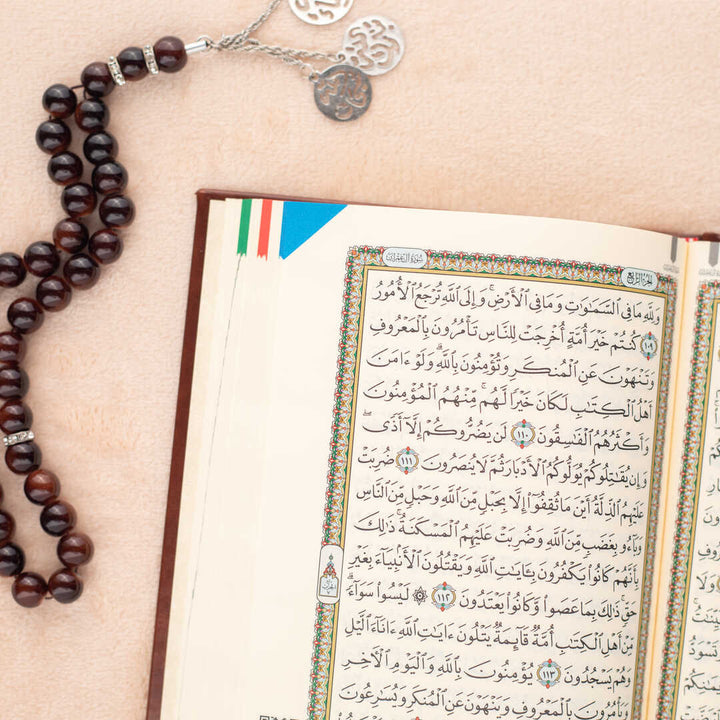 سُورَةُ آلِ عِمْرَانَ
الجُزْءُ الرَّابِعُ
وَلِلَّهِ مَا فِي السَّمَٰوَٰتِ وَمَا فِي الْأَرْضِ ۚ وَإِلَى اللَّهِ تُرْجَعُ الْأُمُورُ
١٠٩ كُنتُمْ خَيْرَ أُمَّةٍ أُخْرِجَتْ لِلنَّاسِ تَأْمُرُونَ بِالْمَعْرُوفِ
وَتَنْهَوْنَ عَنِ الْمُنكَرِ وَتُؤْمِنُونَ بِاللَّهِ ۗ وَلَوْ ءَامَنَ
أَهْلُ الْكِتَٰبِ لَكَانَ خَيْرًا لَّهُم ۚ مِّنْهُمُ الْمُؤْمِنُونَ
وَأَكْثَرُهُمُ الْفَٰسِقُونَ ١١٠ لَن يَضُرُّوكُمْ إِلَّا أَذًى ۖ
وَإِن يُقَٰتِلُوكُمْ يُوَلُّوكُمُ الْأَدْبَارَ ثُمَّ لَا يُنصَرُونَ ١١١ ضُرِبَتْ
عَلَيْهِمُ الذِّلَّةُ أَيْنَ مَا ثُقِفُوا إِلَّا بِحَبْلٍ مِّنَ اللَّهِ وَحَبْلٍ مِّنَ النَّاسِ
وَبَاءُو بِغَضَبٍ مِّنَ اللَّهِ وَضُرِبَتْ عَلَيْهِمُ الْمَسْكَنَةُ ۚ ذَٰلِكَ
بِأَنَّهُمْ كَانُوا يَكْفُرُونَ بِـَٔايَٰتِ اللَّهِ وَيَقْتُلُونَ الْأَنۢبِيَاءَ بِغَيْرِ
حَقٍّ ۚ ذَٰلِكَ بِمَا عَصَوا وَّكَانُوا يَعْتَدُونَ ١١٢ ۞ لَيْسُوا سَوَاءً ۗ
مِّنْ أَهْلِ الْكِتَٰبِ أُمَّةٌ قَائِمَةٌ يَتْلُونَ ءَايَٰتِ اللَّهِ ءَانَاءَ اللَّيْلِ
وَهُمْ يَسْجُدُونَ ١١٣ يُؤْمِنُونَ بِاللَّهِ وَالْيَوْمِ الْآخِرِ
وَيَأْمُرُونَ بِالْمَعْرُوفِ وَيَنْهَوْنَ عَنِ الْمُنكَرِ وَيُسَٰرِعُونَ